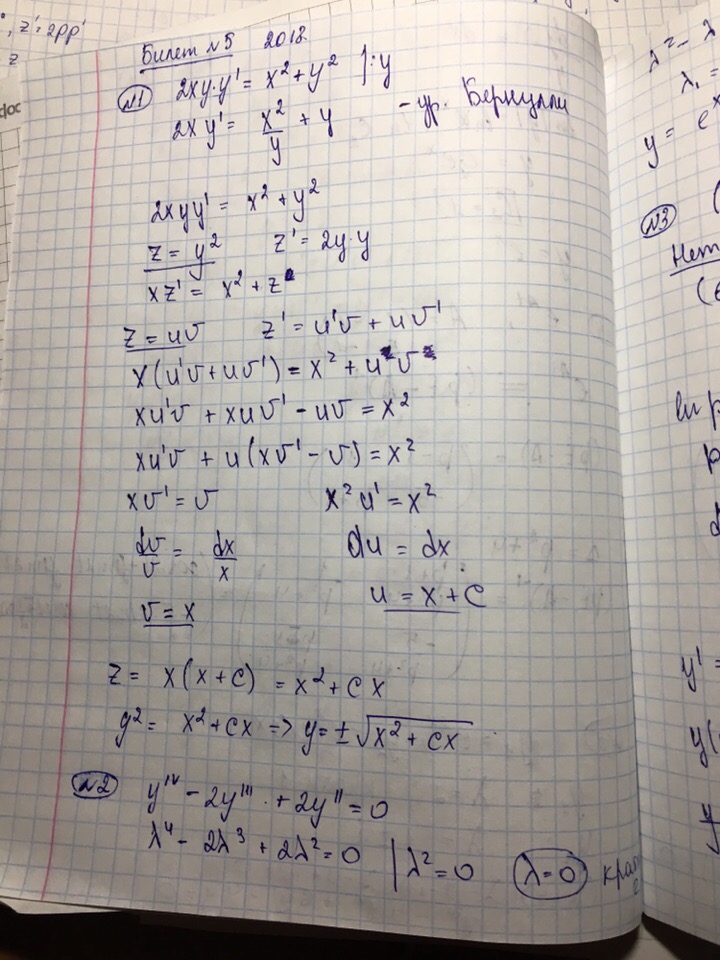 , z' = 2pp'
z
doc
Билет №5 2018
№1 2xy·y' = x² + y² |:y
2xy' = x²/y + y - ур. Бернулли
2xyy' = x² + y²
z = y² z' = 2y·y
xz' = x² + z
z = uv z' = u'v + uv'
x(u'v + uv') = x² + u v
xu'v + xuv' - uv = x²
xu'v + u(xv' - v) = x²
xv' = v x²u' = x²
dv/v = dx/x du = dx
v = x u = x + C
z = x(x + C) = x² + Cx
y² = x² + Cx => y = ±√(x² + Cx)
№2 y'ᵛ - 2y''' + 2y'' = 0
λ⁴ - 2λ³ + 2λ² = 0 | λ² = 0 λ = 0
λ² - λ
λ₁ =
y = eˣ
№3
Нет
y' =
y(
y